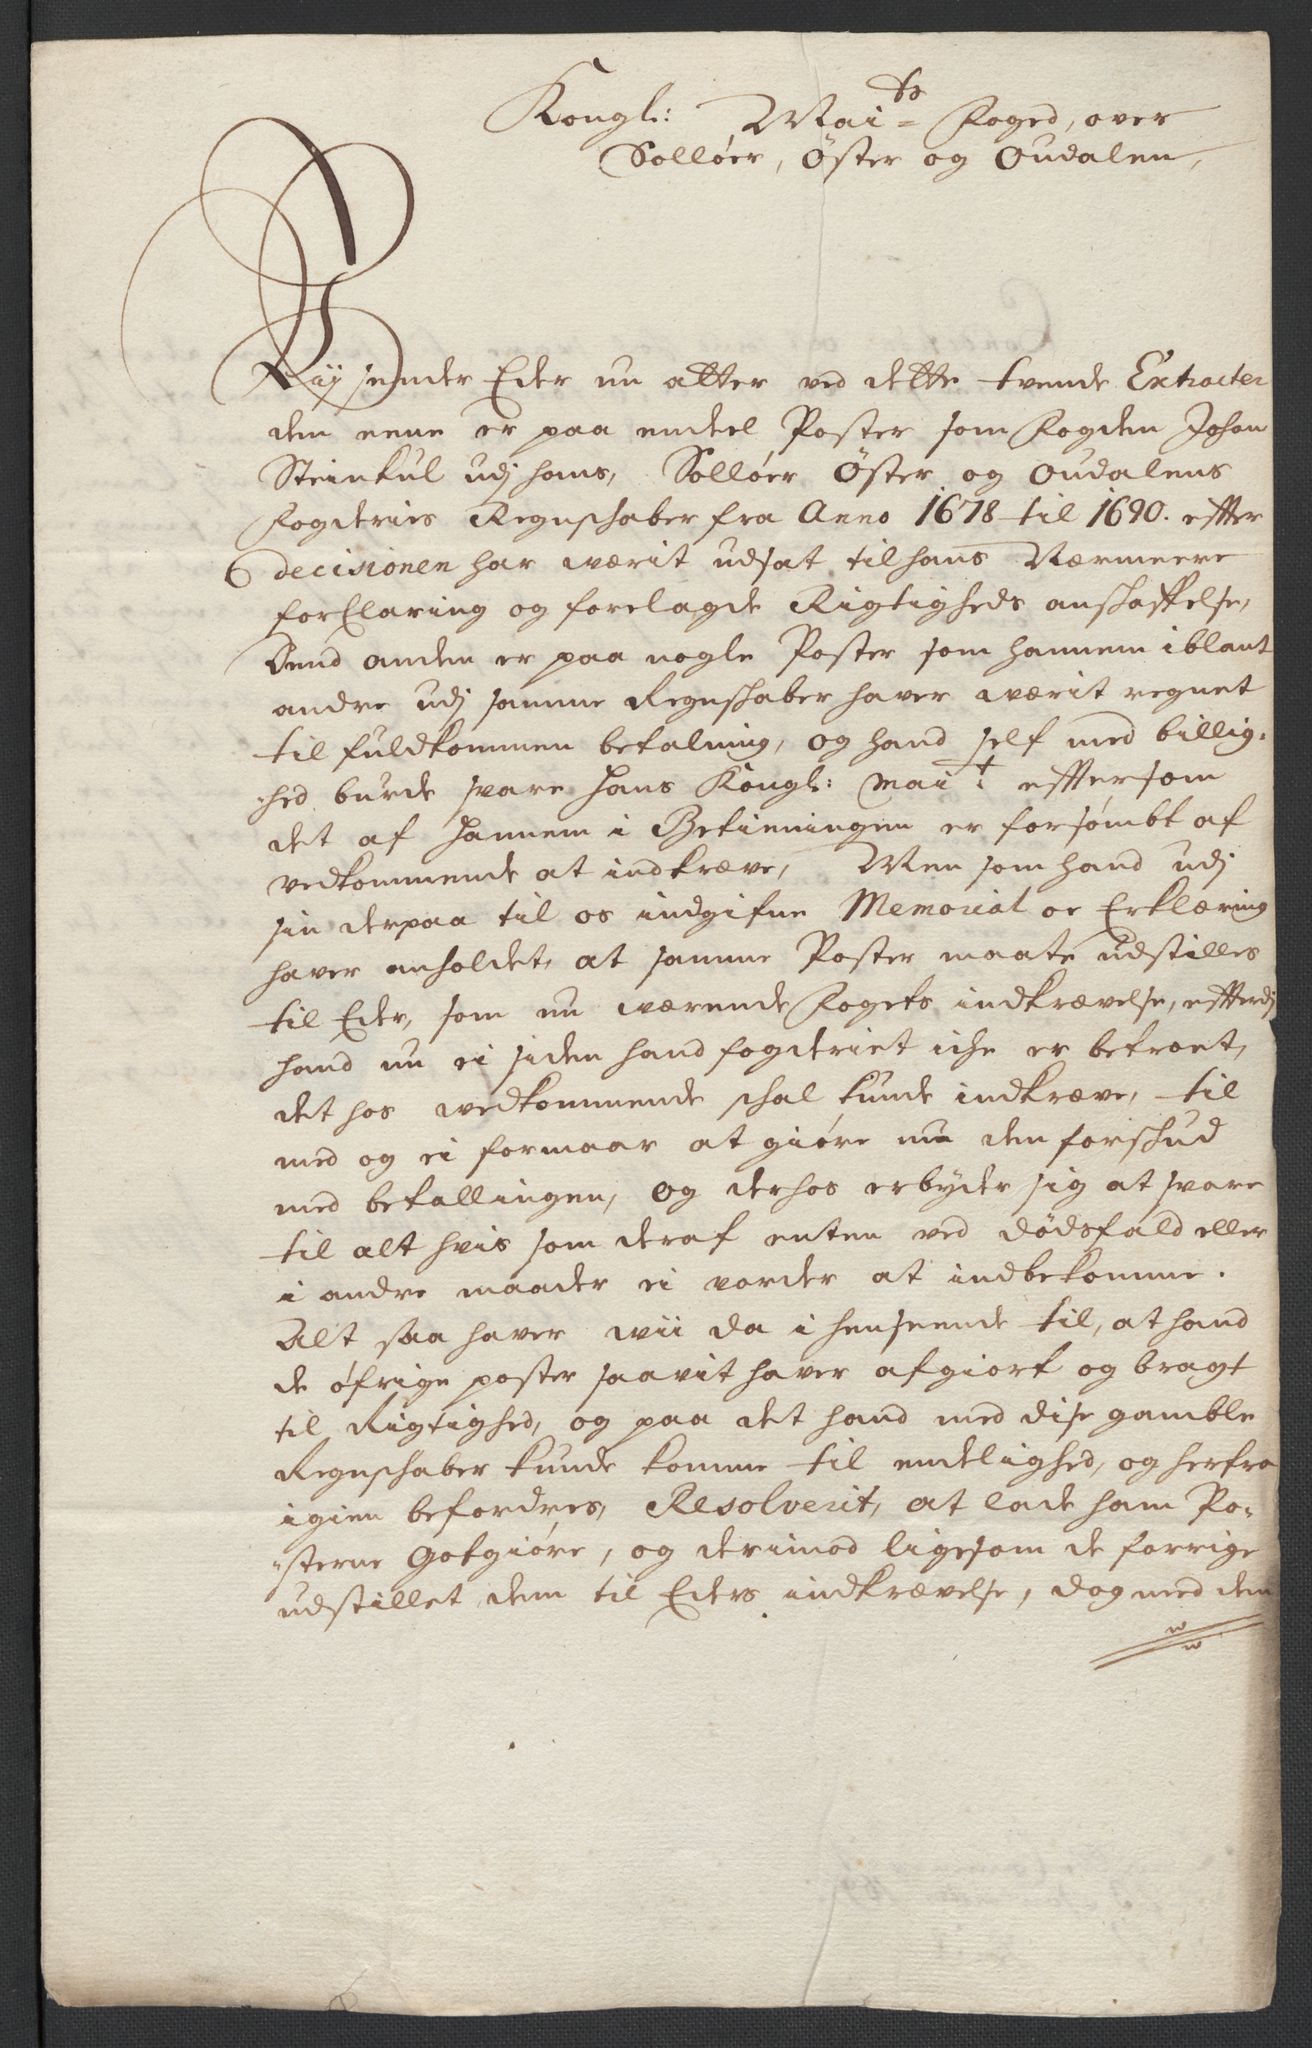 Kongl: Maits Foged, over
Solløer, Öster og Oudalen,
Wij sender Eder nu atter ved dette tvende Extracter
den eene er paa endeel Poster som Fogden Johan
Steinkul udj hans, Solløer Öster og Oudalens
Fogderies Regnschaber fra Anno 1678 til 1690. effter
decisionen har wærit udsat til hans Nærmeere
forClaring og forelagde Rigtigheds anschaffelse,
Dend anden er paa nogle Poster som hannem iblant
andre udj samme Regnschaber haver wærit regnet
til fuldkommen betalning, og hand self med billig-
-hed burde svare Hans Kongl: Mait: effter som
det af Hannem i Betieningen er forsømbt af
vedkommende at indkræve, Men som hand udj
sin derpaa til os indgifne Memorial oc Erklæring
haver anholdet, at samme Poster maate udstilles
til Eder, som nu wærende Fogets indkrævelse, effterdj
hand nu ei siden hand fogderiet iche er betroet,
det hos wedkommende schal kunde indkræve, til
med og ei formaar at giøre nu den forschud
med betallingen, og derhos erbyder sig at svare
til alt hvis som deraf enten ved dødsfald eller
i andre maader ei vorder at indbekomme.
Alt saa haver wii da i henseende til, at hand
de øfrige poster saavit haver afgiort og bragt
til Rigtighed, og paa det hand med dise gamble
Regnschaber kunde komme til endelighed, og herfra
igien befordres, Resolverit, at lade ham Po-
-sterne Gotgiøre, og derimod ligesom de forrige
udstillet dem til Eders indkrævelse, dog med dem